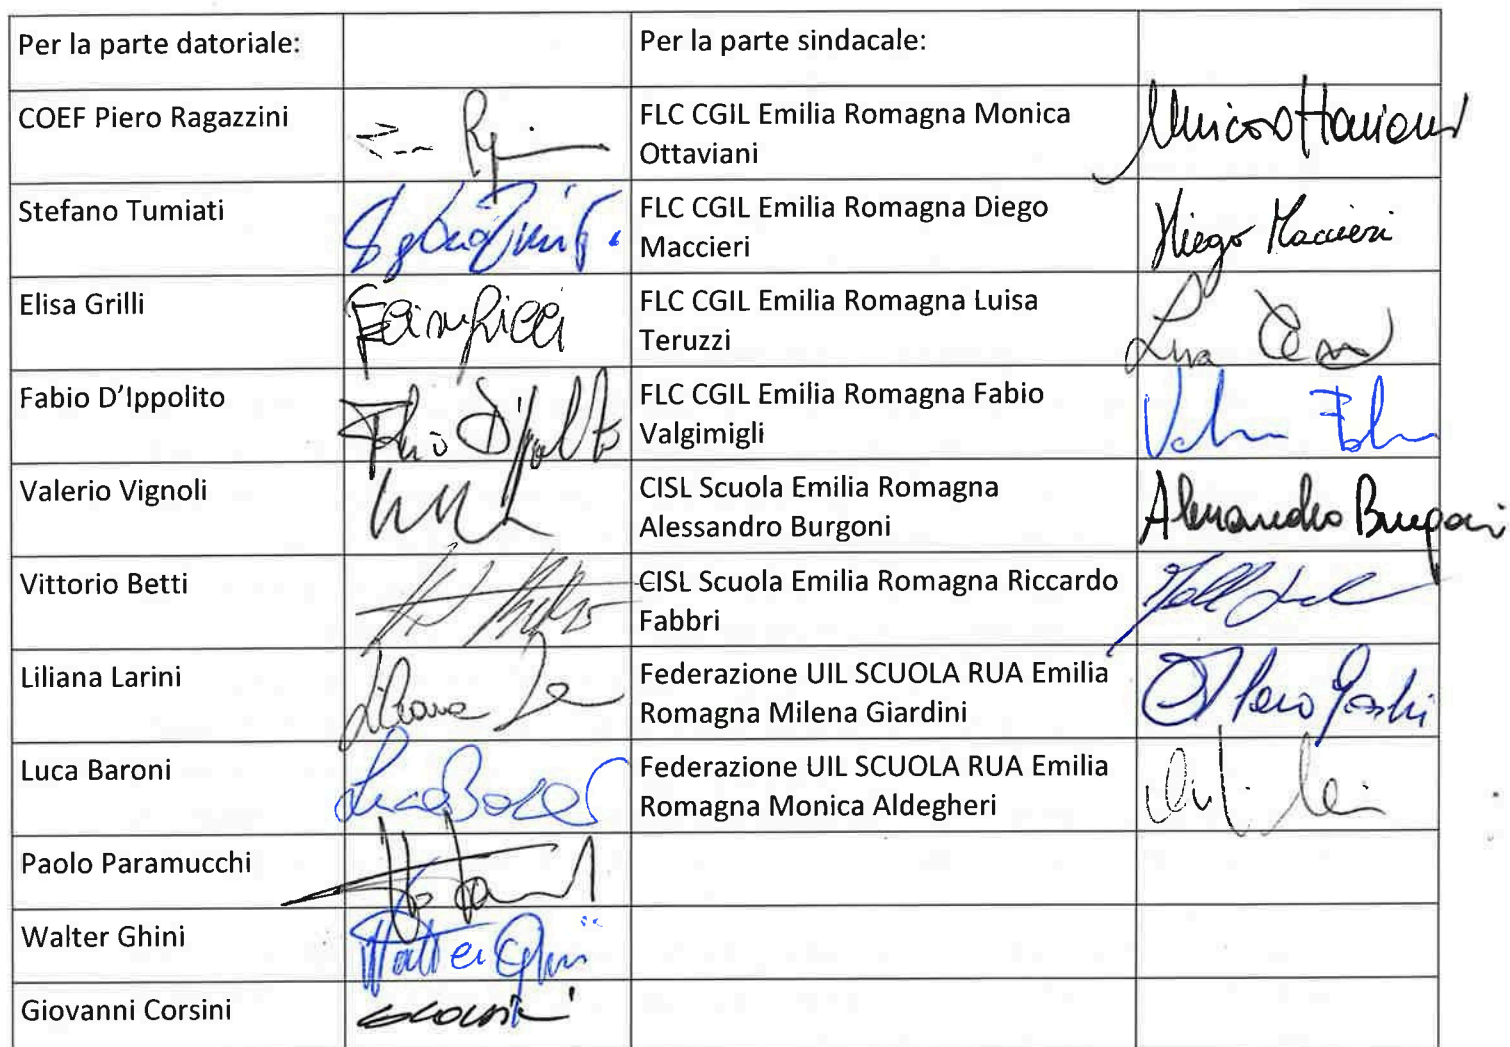 Per la parte datoriale:
Per la parte sindacale:
COEF Piero Ragazzini
FLC CGIL Emilia Romagna Monica
Ottaviani
Stefano Tumiati
FLC CGIL Emilia Romagna Diego
Maccieri
Diego Maccieri
Elisa Grilli
FLC CGIL Emilia Romagna Luisa
Teruzzi
Fabio D'Ippolito
Fabio D'Ippolito
FLC CGIL Emilia Romagna Fabio
Valgimigli
Valerio Vignoli
CISL Scuola Emilia Romagna
Alessandro Burgoni
Alessandro Burgoni
Vittorio Betti
CISL Scuola Emilia Romagna Riccardo
Fabbri
Liliana Larini
Federazione UIL SCUOLA RUA Emilia
Romagna Milena Giardini
Luca Baroni
Federazione UIL SCUOLA RUA Emilia
Romagna Monica Aldegheri
Paolo Paramucchi
Walter Ghini
Walter Ghini
Giovanni Corsini